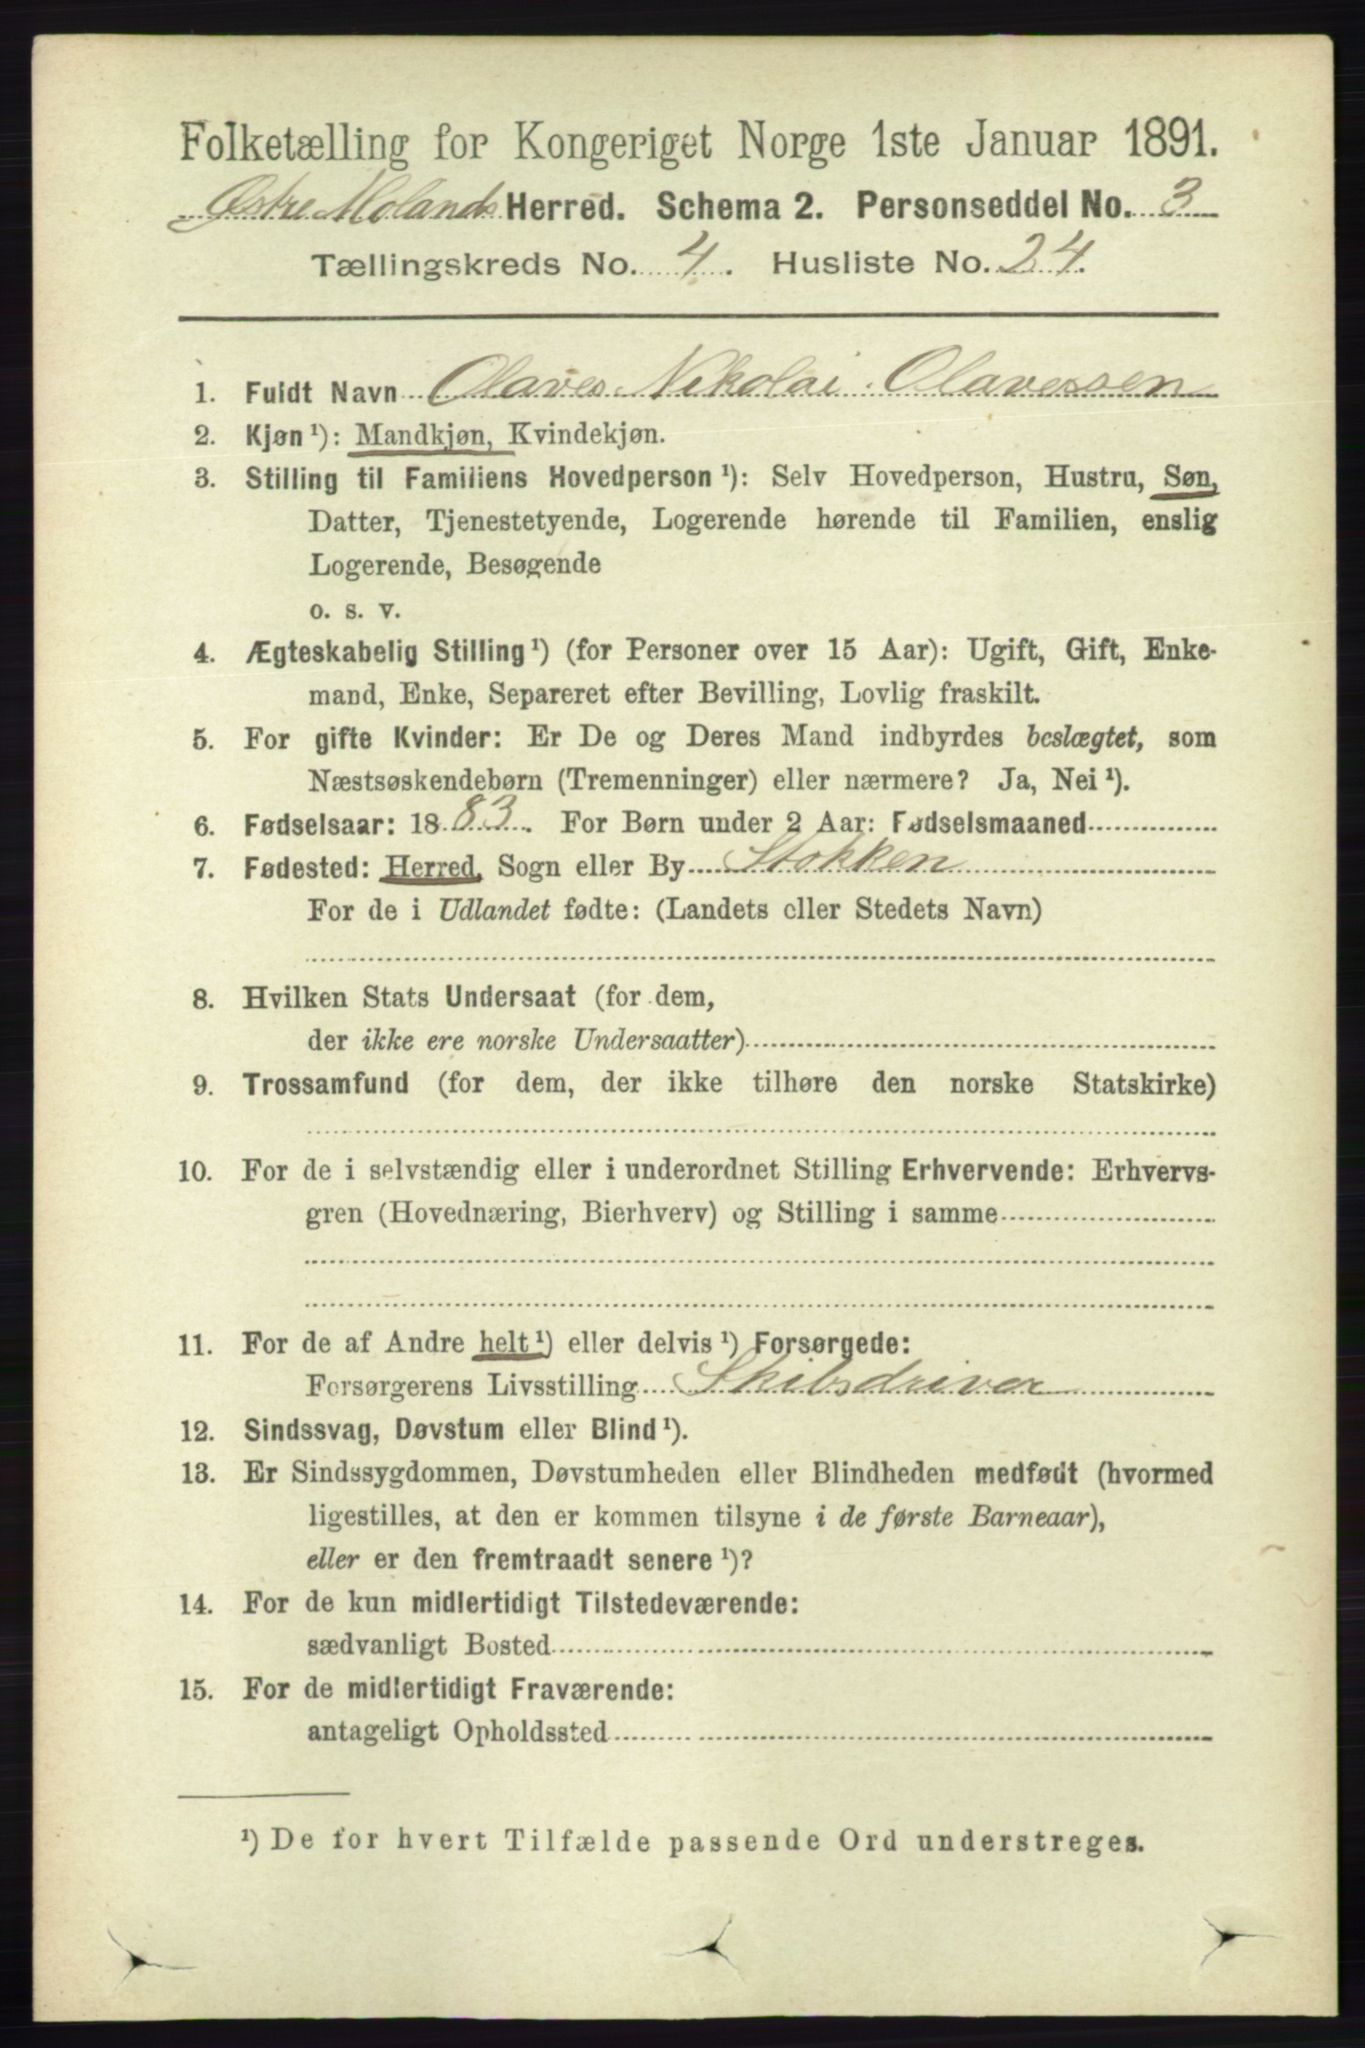 Folketælling for Kongeriget Norge 1ste Januar 1891.
Østre Molands Herred. Schema 2. Personseddel No. 3
Tællingskreds No. 4. Husliste No. 24.
1. Fuldt Navn Olaves Nikolai Olavessen
2. Kjøn ¹): Mandkjøn, Kvindekjøn.
3. Stilling til Familiens Hovedperson ¹): Selv Hovedperson, Hustru, Søn,
Datter, Tjenestetyende, Logerende hørende til Familien, enslig
Logerende, Besøgende
o. s. v.
4. Ægteskabelig Stilling ¹) (for Personer over 15 Aar): Ugift, Gift, Enke-
mand, Enke, Separeret efter Bevilling, Lovlig fraskilt.
5. For gifte Kvinder: Er De og Deres Mand indbyrdes beslægtet, som
Næstsøskendebørn (Tremenninger) eller nærmere? Ja, Nei ¹).
6. Fødselsaar: 1883. For Børn under 2 Aar: Fødselsmaaned
7. Fødested: Herred, Sogn eller By Stokken
For de i Udlandet fødte: (Landets eller Stedets Navn)
8. Hvilken Stats Undersaat (for dem,
der ikke ere norske Undersaatter)
9. Trossamfund (for dem, der ikke tilhøre den norske Statskirke)
10. For de i selvstændig eller i underordnet Stilling Erhvervende: Erhvervs-
gren (Hovednæring, Bierhverv) og Stilling i samme
11. For de af Andre helt ¹) eller delvis ¹) Forsørgede:
Forsørgerens Livsstilling Skibsdriver
12. Sindssvag, Døvstum eller Blind ¹).
13. Er Sindssygdommen, Døvstumheden eller Blindheden medfødt (hvormed
ligestilles, at den er kommen tilsyne i de første Barneaar),
eller er den fremtraadt senere ¹)?
14. For de kun midlertidigt Tilstedeværende:
sædvanligt Bosted
15. For de midlertidigt Fraværende:
antageligt Opholdssted
¹) De for hvert Tilfælde passende Ord understreges.